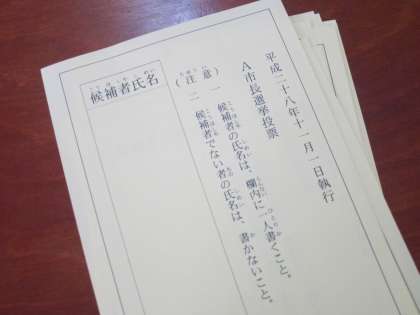 平成二十八年十一月一日執行
A市長選挙投票
(注意)
一 候補者の氏名は、欄内に一人書くこと。
二 候補者でない者の氏名は、書かないこと。
候補者氏名